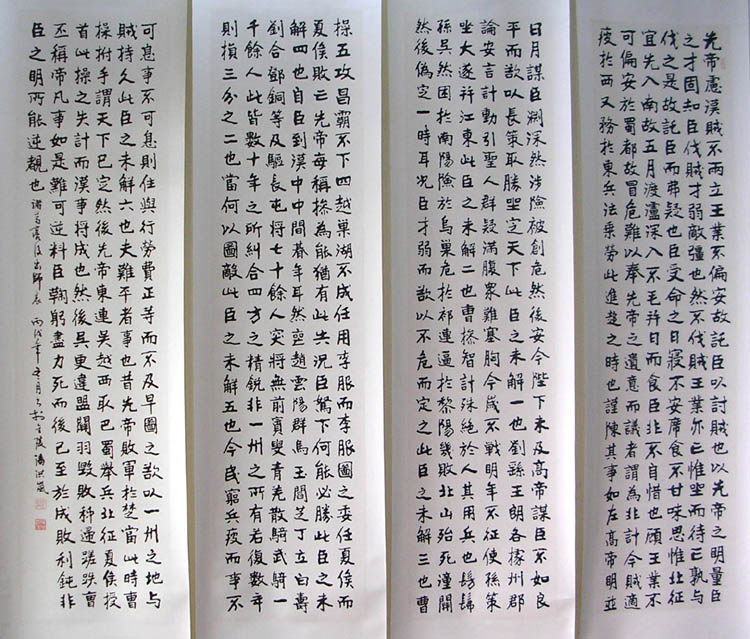 先帝慮漢賊不兩立王業不偏安故託臣以討賊也以先帝之明量臣
之才固知臣伐賊才弱敵彊也然不伐賊王業亦亡惟坐而待亡孰與
伐之是故託臣而弗疑也臣受命之日寢不安席食不甘味思惟北征
宜先入南故五月渡瀘深入不毛并日而食臣非不自惜也顧王業不
可偏安於蜀都故冒危難以奉先帝之遺意而議者謂為非計今賊適
疲於西又務於東兵法乘勞此進趨之時也謹陳其事如左高帝明並
日月謀臣淵深然涉險被創危然後安今陛下未及高帝謀臣不如良
平而欲以長策取勝坐定天下此臣之未解一也劉繇王朗各據州郡
論安言計動引聖人群疑滿腹眾難塞胸今歲不戰明年不征使孫策
坐大遂并江東此臣之未解二也曹操智計殊絕於人其用兵也髣髴
孫吳然困於南陽險於烏巢危於祁連逼於黎陽幾敗北山殆死潼關
然後偽定一時耳況臣才弱而欲以不危而定之此臣之未解三也曹
操五攻昌霸不下四越巢湖不成任用李服而李服圖之委任夏侯而
夏侯敗亡先帝每稱操為能猶有此失況臣駑下何能必勝此臣之未
解四也自臣到漢中中間朞年耳然喪趙雲陽群馬玉閻芝丁立白壽
劉合鄧銅等及曲長屯將七十餘人突將無前賨叟青羌散騎武騎一
千餘人此皆數十年之所糾合四方之精銳非一州之所有若復數年
則損三分之二也當何以圖敵此臣之未解五也今民窮兵疲而事不
可息事不可息則住與行勞費正等而不及早圖之欲以一州之地與
賊持久此臣之未解六也夫難平者事也昔先帝敗軍於楚當此時曹
操拊手謂天下已定然後先帝東連吳越西取巴蜀舉兵北征夏侯授
首此操之失計而漢事將成也然後吳更違盟關羽毀敗秭歸蹉跌曹
丕稱帝凡事如是難可逆料臣鞠躬盡力死而後已至於成敗利鈍非
臣之明所能逆覩也 諸葛亮後出師表 丙戌年